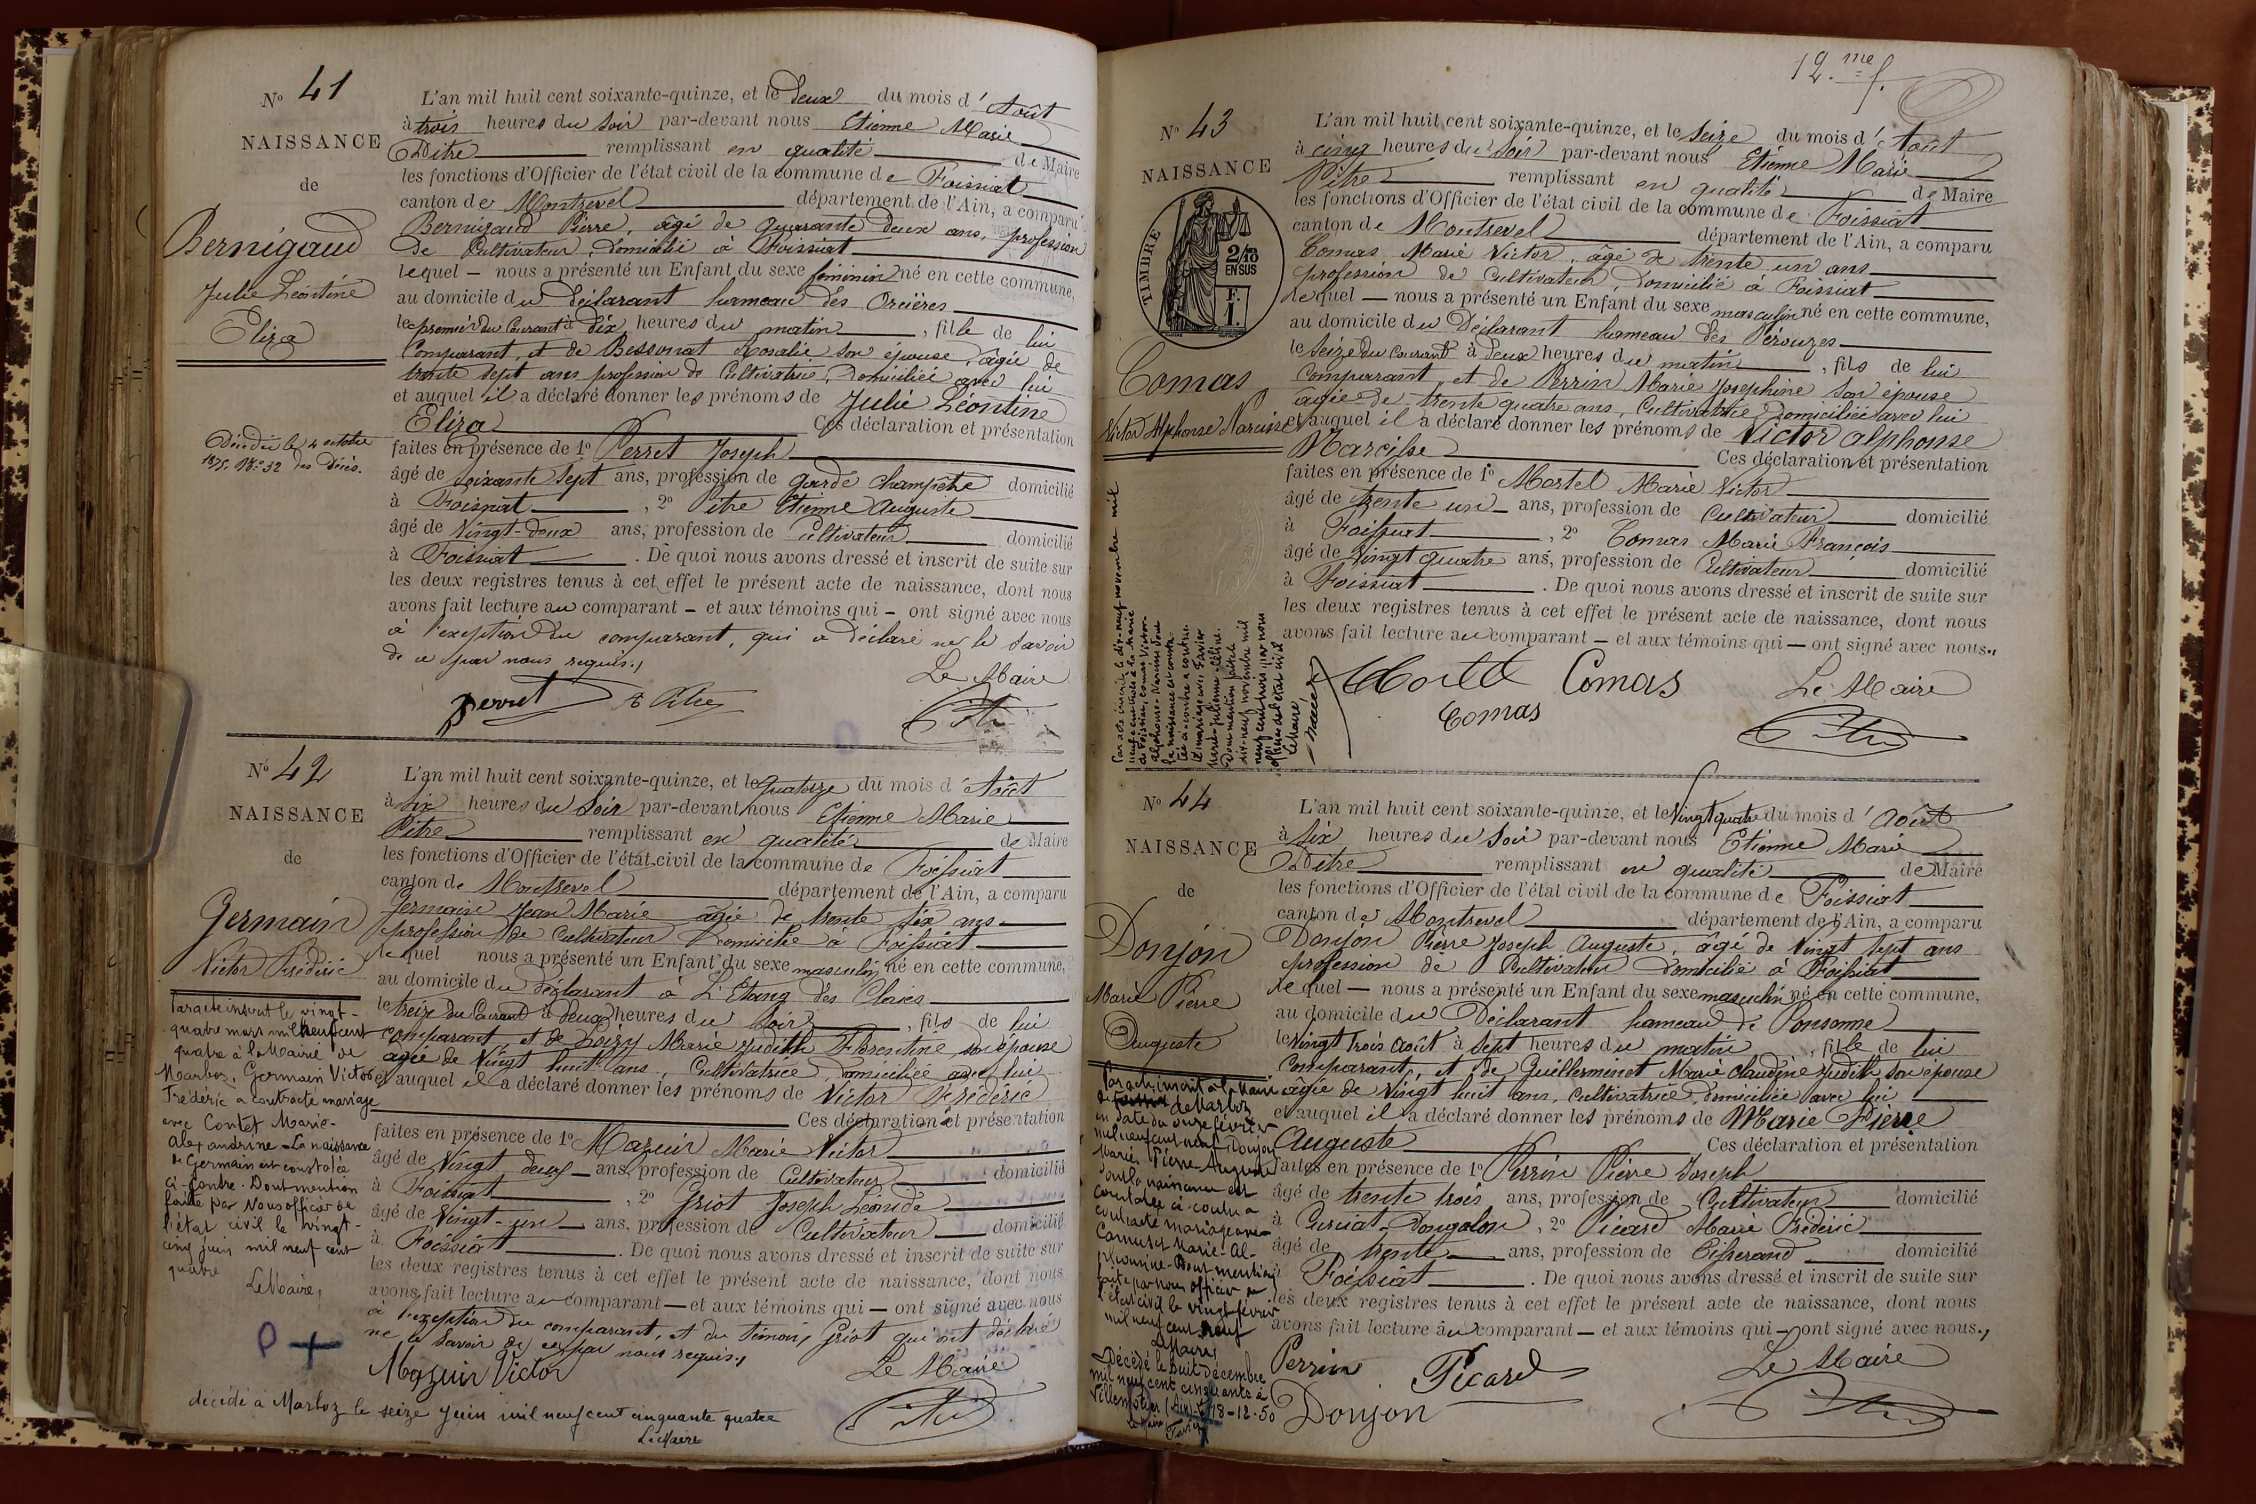 N° 41
NAISSANCE
de
Bernigaud
Julie Léontine
Eliza
Décédée le 4 octobre
1875. N° 32 des décès.
L'an mil huit cent soixante-quinze, et le deux du mois d'Août
à trois heures du Soir par-devant nous Etienne Marie
Pitre remplissant en qualité de Maire
les fonctions d'Officier de l'état civil de la commune de Foissiat
canton de Montrevel département de l'Ain, a comparu
Bernigaud Pierre, âgé de quarante deux ans, profession
de Cultivateur, domicilié à Foissiat
lequel — nous a présenté un Enfant du sexe féminin né en cette commune,
au domicile du déclarant hameau des Orcières
le premier du Courant à dix heures du matin, fille de lui
Comparant, et de Bessonat Rosalie son épouse, âgée de
trente sept ans profession de Cultivatrice, domiciliée avec lui
et auquel il a déclaré donner les prénoms de Julie Léontine
Eliza Ces déclaration et présentation
faites en présence de 1° Perret Joseph
âgé de soixante sept ans, profession de garde champêtre domicilié
à Foissiat, 2° Pitre Etienne Auguste
âgé de Vingt-deux ans, profession de Cultivateur domicilié
à Foissiat. De quoi nous avons dressé et inscrit de suite sur
les deux registres tenus à cet effet le présent acte de naissance, dont nous
avons fait lecture au comparant — et aux témoins qui — ont signé avec nous
à l'exception du comparant, qui a déclaré ne le savoir
de ce par nous requis.,
Le Maire
Perret A Pitre Pitre
N° 42
NAISSANCE
de
Germain
Victor Frédéric
Par acte inscrit le vingt-
quatre mars mil neuf cent
quatre à la Mairie de
Marboz, Germain Victor
Frédéric a contracté mariage
avec Contet Marie-
Alexandrine - La naissance
de Germain est constatée
ci-contre. Dont mention
faite par Nous officier de
l'état civil le vingt-
cinq juin mil neuf cent
quatre
Le Maire,
P +
L'an mil huit cent soixante-quinze, et le quatorze du mois d'Août
à six heures du Soir par-devant nous Etienne Marie
Pitre remplissant en qualité de Maire
les fonctions d'Officier de l'état civil de la commune de Foissiat
canton de Montrevel département de l'Ain, a comparu
Germain Jean Marie âgé de trente six ans
profession de Cultivateur Domicilié à Foissiat
lequel nous a présenté un Enfant du sexe masculin né en cette commune,
au domicile du déclarant à L'Etang des Claies
le treize du Courant à deux heures du Soir, fils de lui
comparant, et de Loisy Marie Judith Florentine son épouse
âgée de Vingt huit ans, Cultivatrice, domiciliée avec lui
et auquel il a déclaré donner les prénoms de Victor Frédéric
Ces déclaration et présentation
faites en présence de 1° Mazuir Marie Victor
âgé de Vingt deux — ans, profession de Cultivateur domicilié
à Foissiat, 2° Griot Joseph Léonide
âgé de Vingt-un — ans, profession de Cultivateur domicilié
à Foissiat. De quoi nous avons dressé et inscrit de suite sur
les deux registres tenus à cet effet le présent acte de naissance, dont nous
avons fait lecture au comparant — et aux témoins qui — ont signé avec nous
à l'exception du comparant, et du témoin Griot qui ont déclaré
ne le savoir de ce par nous requis.,
Mazuir Victor Le Maire
Pitre
décédé à Marboz le seize Juin mil neuf cent cinquante quatre
Le Maire
12.me f.
N° 43
NAISSANCE
TIMBRE
2/10
EN SUS
F.
1.
Comas
Victor Alphonse Narcisse
Par acte inscrit le dix-neuf novembre mil
neuf cent trois à la mairie
de Foissiat, Comas Victor-
Alphonse-Narcisse dont
la naissance est consta-
tée ci-contre a contrac-
té mariage avec Favier
Marie-Julienne-Céline.
Dont mention faite le
dix-neuf novembre mil
neuf cent trois par nous
officier de l'état civil
Le Maire
L'an mil huit cent soixante-quinze, et le Seize du mois d'Août
à cinq heures du Soir par-devant nous Etienne Marie
Pitre remplissant en qualité de Maire
les fonctions d'Officier de l'état civil de la commune de Foissiat
canton de Montrevel département de l'Ain, a comparu
Comas Marie Victor, âgé de trente un ans
profession de Cultivateur, domicilié à Foissiat
lequel — nous a présenté un Enfant du sexe masculin né en cette commune,
au domicile du Déclarant hameau des Pérouzes
le Seize du Courant à deux heures du matin, fils de lui
Comparant, et de Perrin Marie Josephine son épouse
âgée de trente quatre ans, Cultivatrice Domiciliée avec lui
et auquel il a déclaré donner les prénoms de Victor alphonse
Narcisse Ces déclaration et présentation
faites en présence de 1° Mortel Marie Victor
âgé de trente un — ans, profession de Cultivateur domicilié
à Foissiat, 2° Comas Marie François
âgé de Vingt quatre ans, profession de Cultivateur domicilié
à Foissiat. De quoi nous avons dressé et inscrit de suite sur
les deux registres tenus à cet effet le présent acte de naissance, dont nous
avons fait lecture au comparant — et aux témoins qui — ont signé avec nous.,
Comas Le Maire
Comas Pitre
N° 44
NAISSANCE
de
Donjon
Marie Pierre
Auguste
Par acte inscrit à la Mairie
de Marboz
en date du onze février
mil neuf cent neuf, Donjon
Marie Pierre Auguste
dont la naissance est
constatée ci-contre a
contracté mariage avec
Camuset Marie-Al-
phonsine - Dont mention
faite par nous officier de
l'état civil le vingt février
mil neuf cent neuf
Le Maire,
Décédé le huit décembre
mil neuf cent cinquante à
Villemotier (Ain) 18-12-50
Le Maire
L'an mil huit cent soixante-quinze, et le Vingt quatre du mois d'Août
à six heures du Soir par-devant nous Etienne Marie
Pitre remplissant en qualité de Maire
les fonctions d'Officier de l'état civil de la commune de Foissiat
canton de Montrevel département de l'Ain, a comparu
Donjon Pierre Joseph Auguste, âgé de Vingt sept ans
profession de Cultivateur domicilié à Foissiat
lequel — nous a présenté un Enfant du sexe masculin né en cette commune,
au domicile du Déclarant hameau de Ponsonne
le Vingt trois Août à Sept heures du matin, fille de lui
Comparant, et de Guillerminet Marie Claudine Judith son épouse
âgée de Vingt huit ans, Cultivatrice, domiciliée avec lui
et auquel il a déclaré donner les prénoms de Marie Pierre
Auguste Ces déclaration et présentation
faites en présence de 1° Perrin Pierre Joseph
âgé de trente trois ans, profession de Cultivateur domicilié
à Curciat-Dongalon, 2° Picard Marie Frédéric
âgé de trente — ans, profession de Tisserand domicilié
Foissiat. De quoi nous avons dressé et inscrit de suite sur
les deux registres tenus à cet effet le présent acte de naissance, dont nous
avons fait lecture au comparant — et aux témoins qui — ont signé avec nous.,
Perrin Picard Le Maire
Donjon Pitre